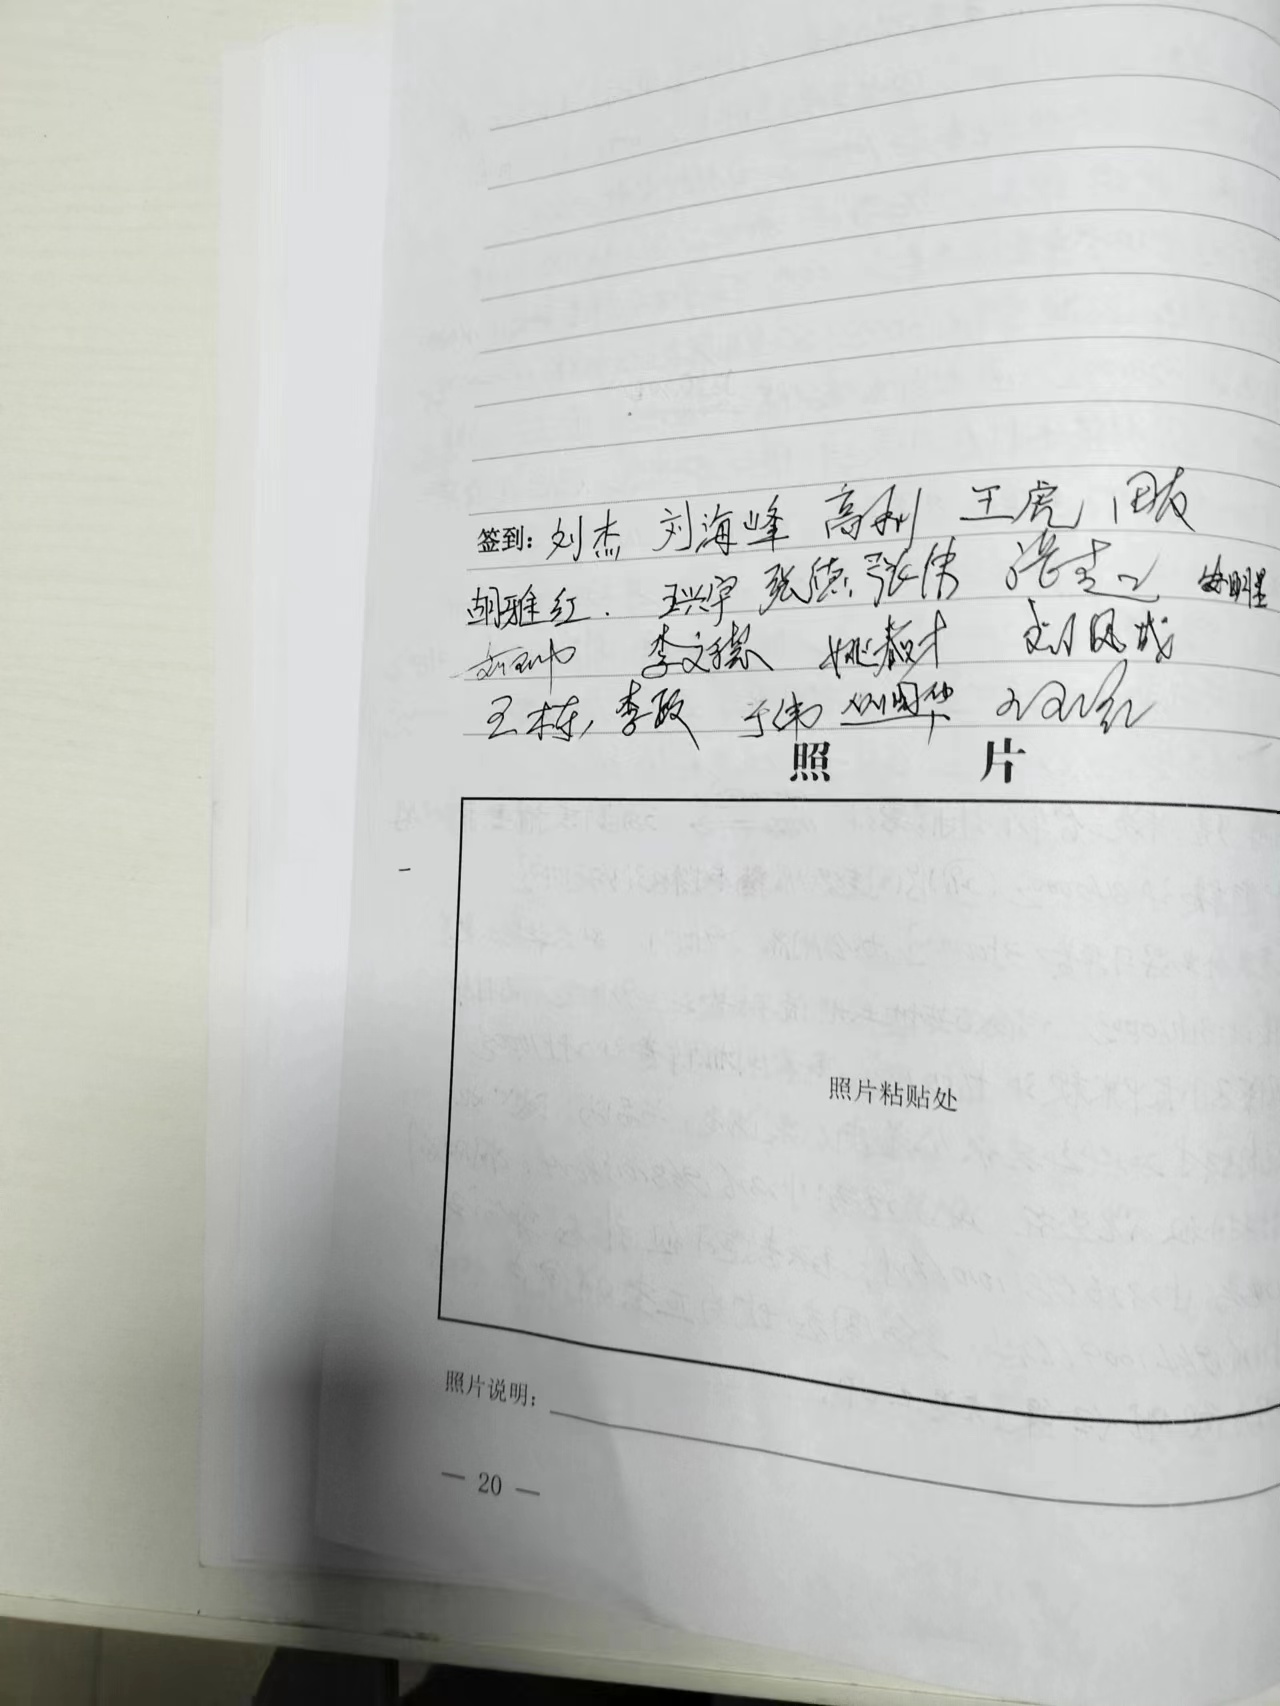 签到: 刘杰 刘海峰 高利 王虎 田友
胡雅红. 王兴宇 张德 张伟 张志 明星
李文穗 姚春才 刘凤成
王栋 李政 于伟 刘国华
照 片
照片粘贴处
照片说明:
— 20 —